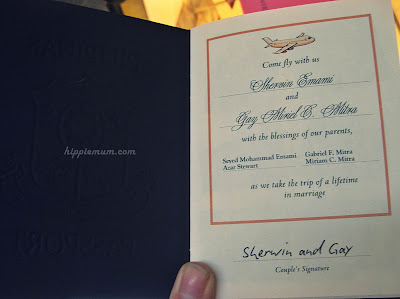 Come fly with us
Sherwin Emami
and
Gay Miriel C. Mitra
with the blessings of our parents,
Seyed Mohammad Emami Gabriel F. Mitra
Azar Stewart Miriam C. Mitra
as we take the trip of a lifetime
in marriage
Sherwin and Gay
Couple's Signature
hippiemum.com
PASSPORT